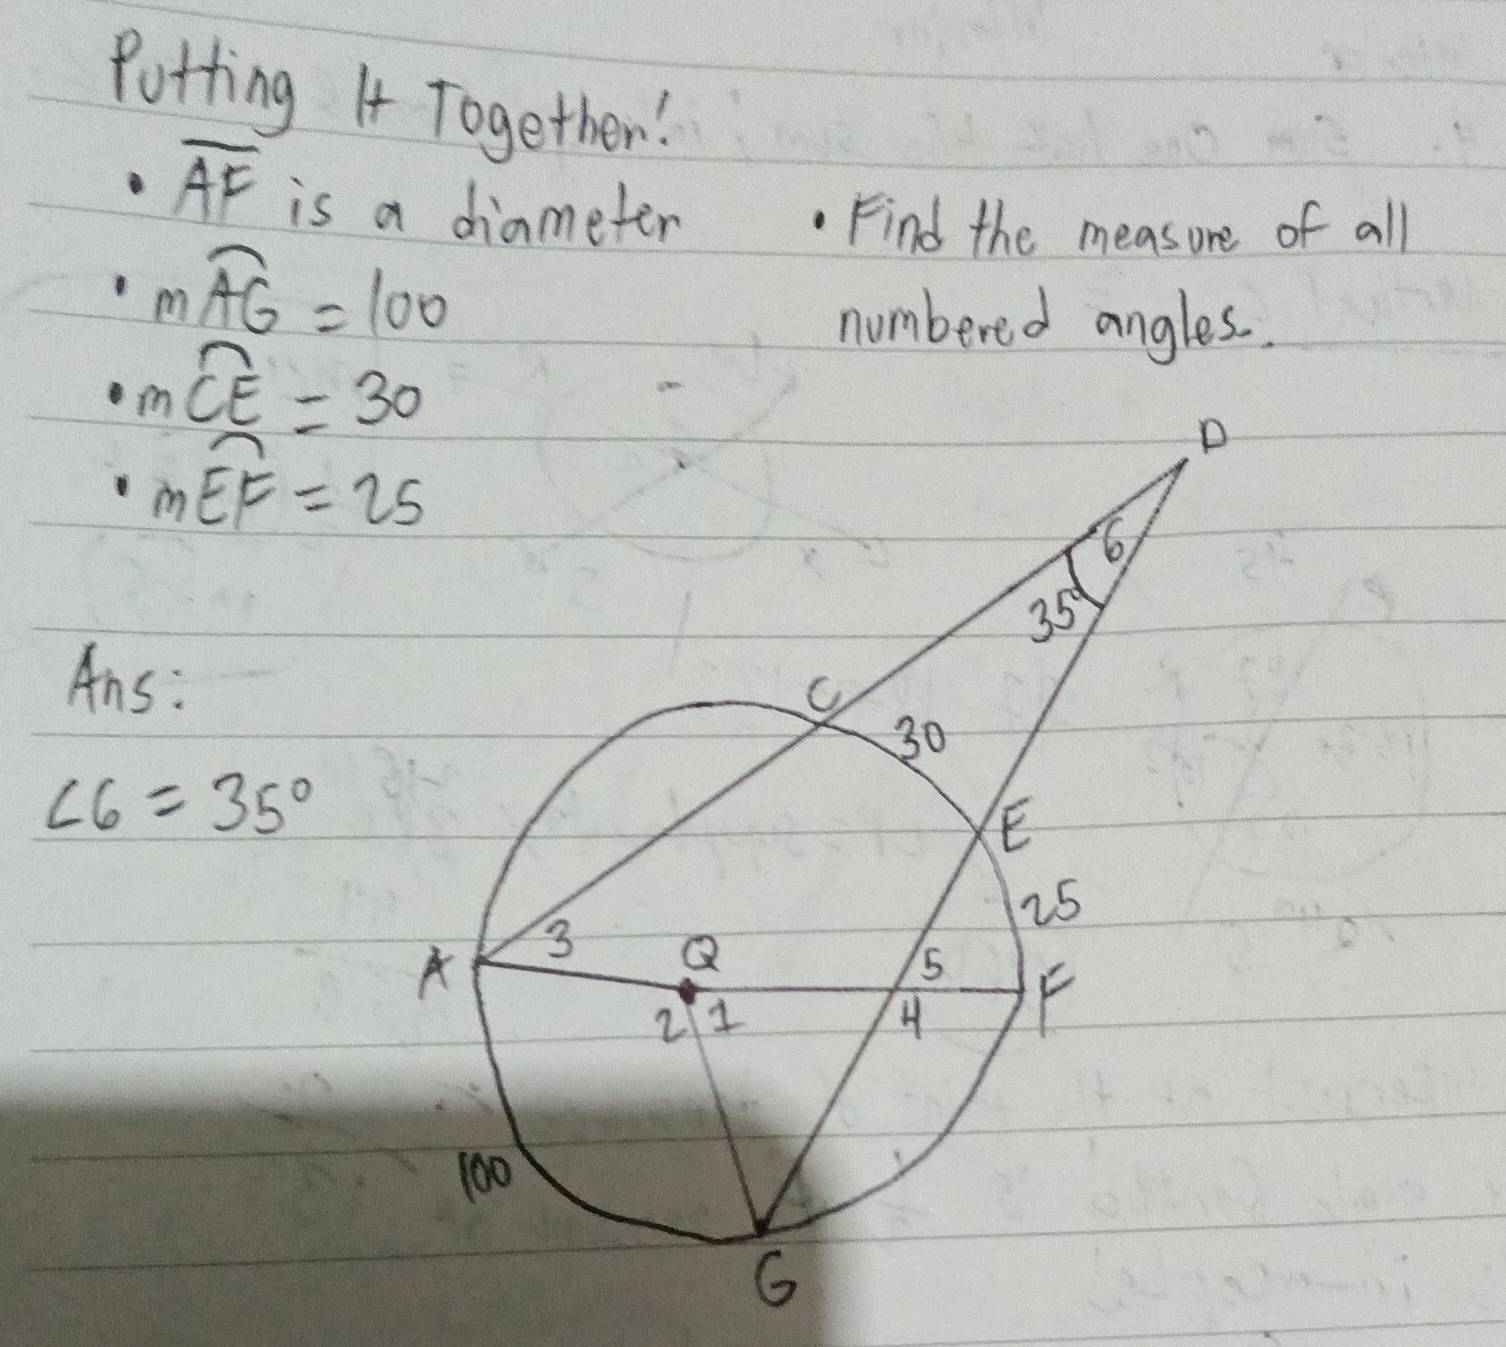 Putting It Together!
• A̅F̅ is a diameter
• m⌒AG = 100
• m⌒CE = 30
• m⌒EF = 25
• Find the measure of all
numbered angles.
D
6
35°
Ans:
C
30
∠6 = 35°
E
25
3
A
Q
5
F
2 1
4
100
G